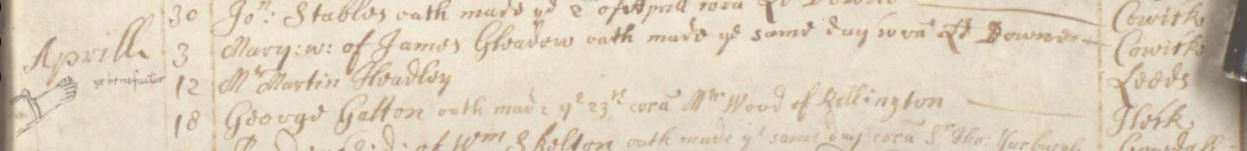 30 Jon: Stables oath made ye 2 of Aprill cora Ld Downe Cowick
Aprill 3 Mary: w: of James Gleadow oath made ye same day cora Ld Downe Cowick
ye benefactor 12 Mr Martin Headley Leeds
18 George Gatton oath made ye 23rd cora Mr Wood of Kellington Heck
of Wm Skelton oath made ye same day cora Sr Tho: Yarburgh